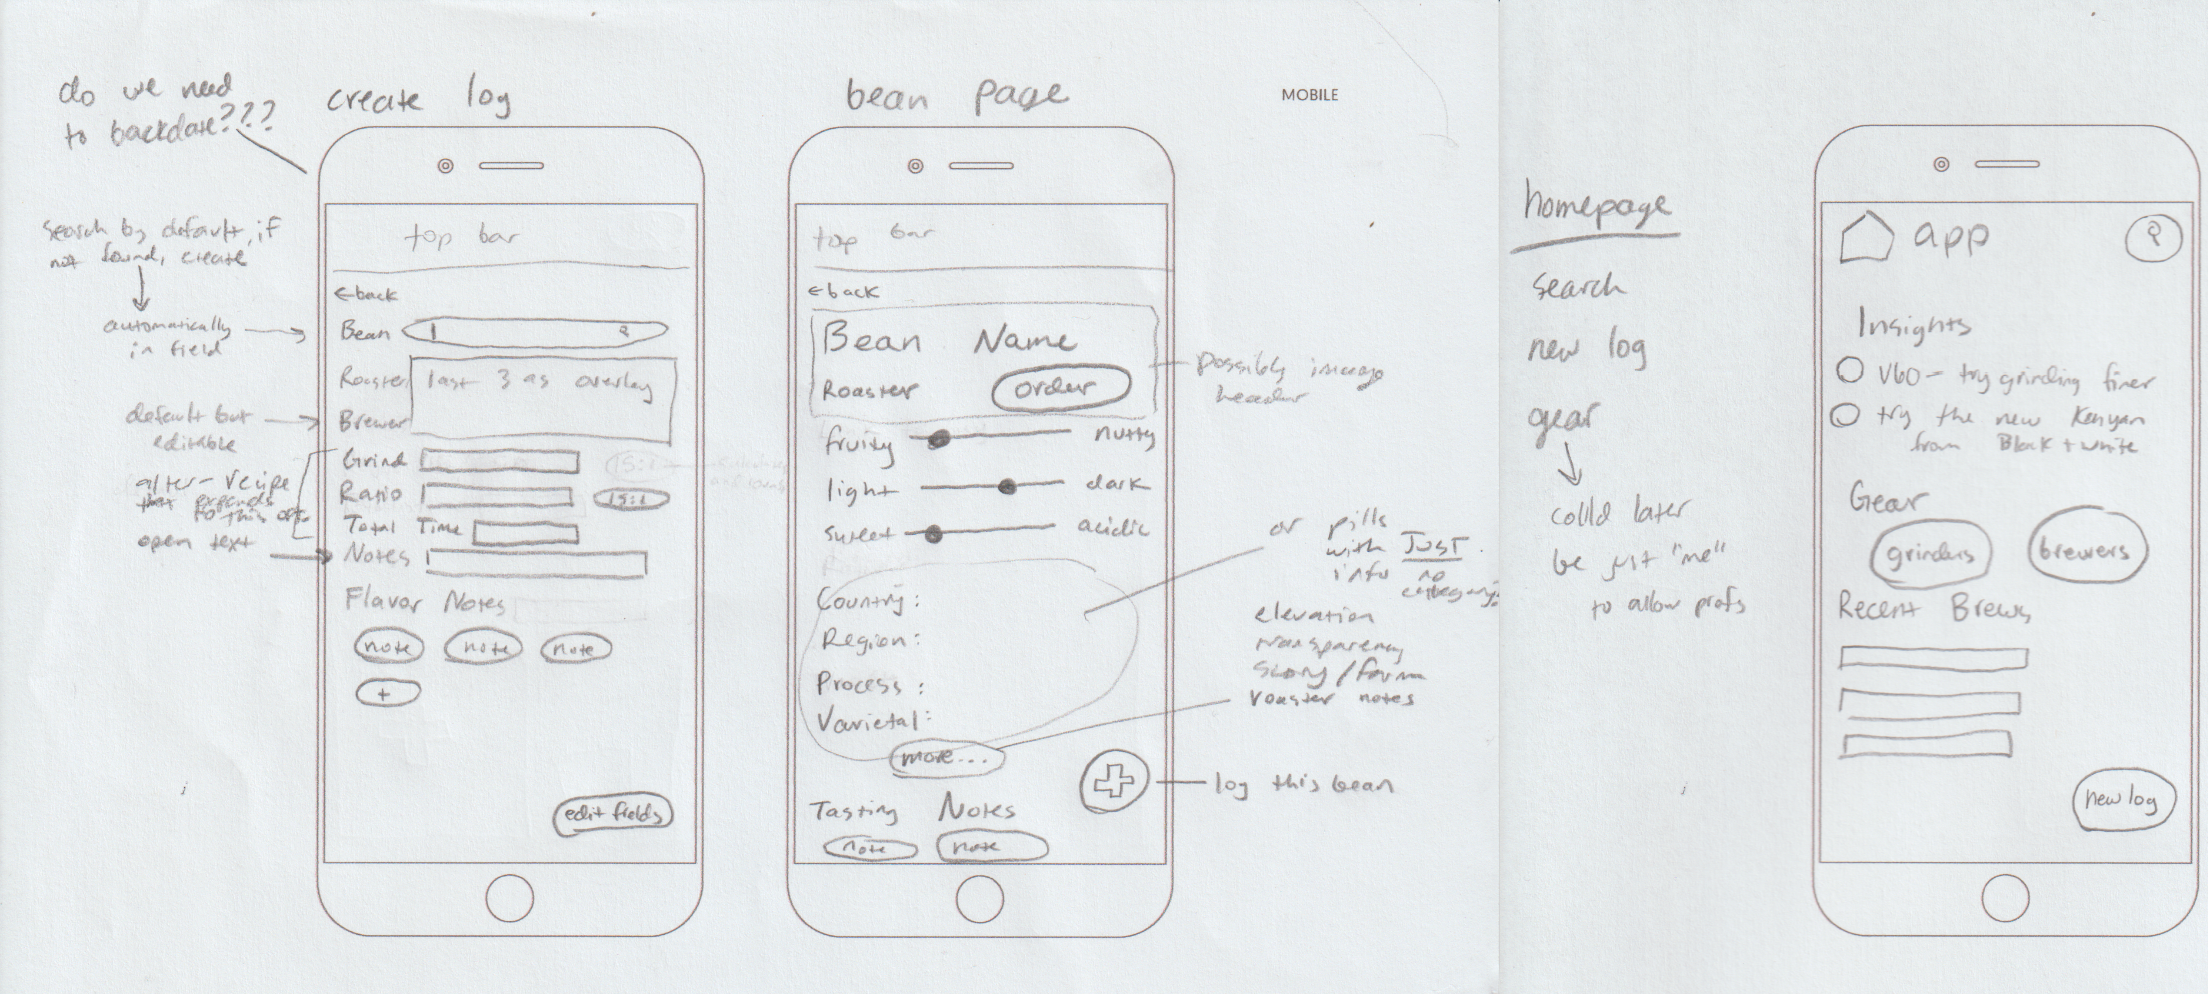 do we need
to backdate???
create log
search by default, if
not found, create
automatically
in field
default but
editable
alter-recipe
that expands
to this opt
open text
top bar
←back
Bean
Roaster
last 3 as overlay
Brewer
Grind
Ratio
15:1
Total Time
Notes
Flavor Notes
note note note
+
edit fields
bean page
MOBILE
top bar
←back
Bean Name
Roaster
order
possibly image
header
fruity
nutty
light
dark
sweet
acidic
Country:
Region:
Process:
Varietal:
more...
or pills
with JUST
info no
category
elevation
transparency
story/farm
roaster notes
log this bean
Tasting Notes
note note
homepage
search
new log
gear
could later
be just "me"
to allow profs
app
Insights
V60 - try grinding finer
try the new Kenyan
from Black + white
Gear
grinders
brewers
Recent Brews
new log
i
i